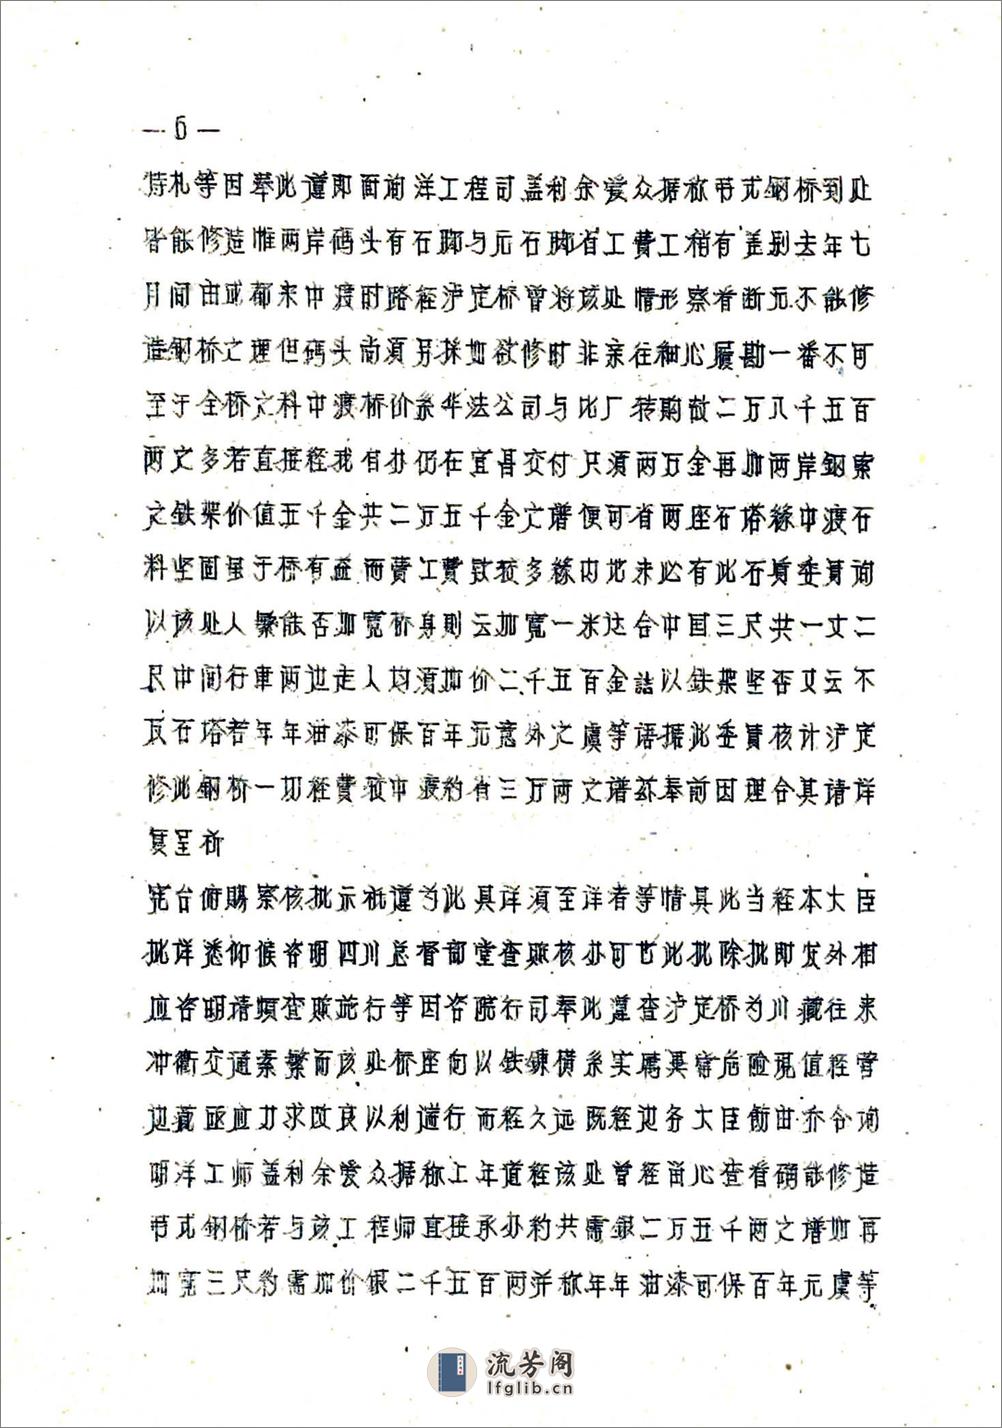 —6—
特札等因奉此遵即面询洋工程司盖利余爱众据称节式钢桥到处
皆能修造惟两岸码头有石脚与无石脚省工费工稍有差别去年七
月间由成都来中渡时路经泸定桥曾将该处情形察看断无不能修
造钢桥之理但码头尚须另採如欲修时非亲往细心履勘一番不可
至于全桥之料中渡桥价系华法公司与比厂转购故二万八千五百
两之多若直接经我有办仍在宜昌交付只须两万金再加两岸钢索
之铁架价值五千金共二万五千金之谱便可省两座石塔缘中渡石
料坚固虽于桥有益而费工费致较多缘内地未必有此石质委员询
以该处人繁能否加宽桥身则云加宽一米达合中国三尺共一丈二
尺中间行車两边走人均须加价二千五百金詰以铁架坚否又云不
及石塔若年年油漆可保百年无意外之虞等语据此委員核计泸定
修此钢桥一切经费较中渡约省三万两之谱兹奉前因理合具请详
复呈祈
宪台俯賜察核批示祇遵为此具详须至详者等情具此当经本大臣
批详悉仰候咨明四川总督部堂查照核办可也此批除批即发外相
应咨明请烦查照施行等因咨院行司奉此遵查泸定桥为川藏往来
冲衢交通素繁而该处桥座向以铁鍊横系实属異常危险现值经营
边藏亟应力求改良以利遄行而经久远既经边务大臣飭由乔令询
明洋工师盖利余爱众据称上年道经该处曾经留心查看确能修造
节式钢桥若与该工程师直接承办约共需銀二万五千两之谱如再
加宽三尺约需加价銀二千五百两并称年年油漆可保百年无虞等
流芳阁
lfglib.cn